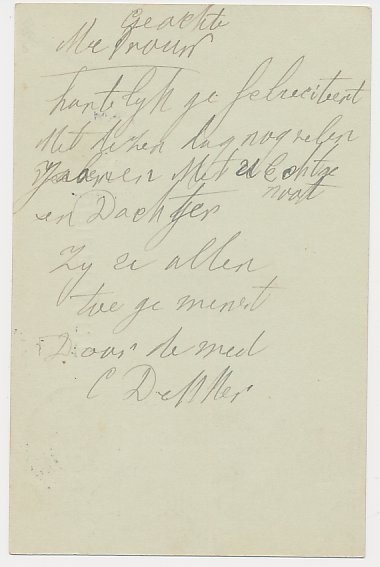 Geachte
Me Vrouw
hartelyk ge felisiteert
Met dezen dag nog velen
Jaaren Met u Echtge
noot
en Dochter
Zy u allen
toe ge wenst
Door de med
C Dekker